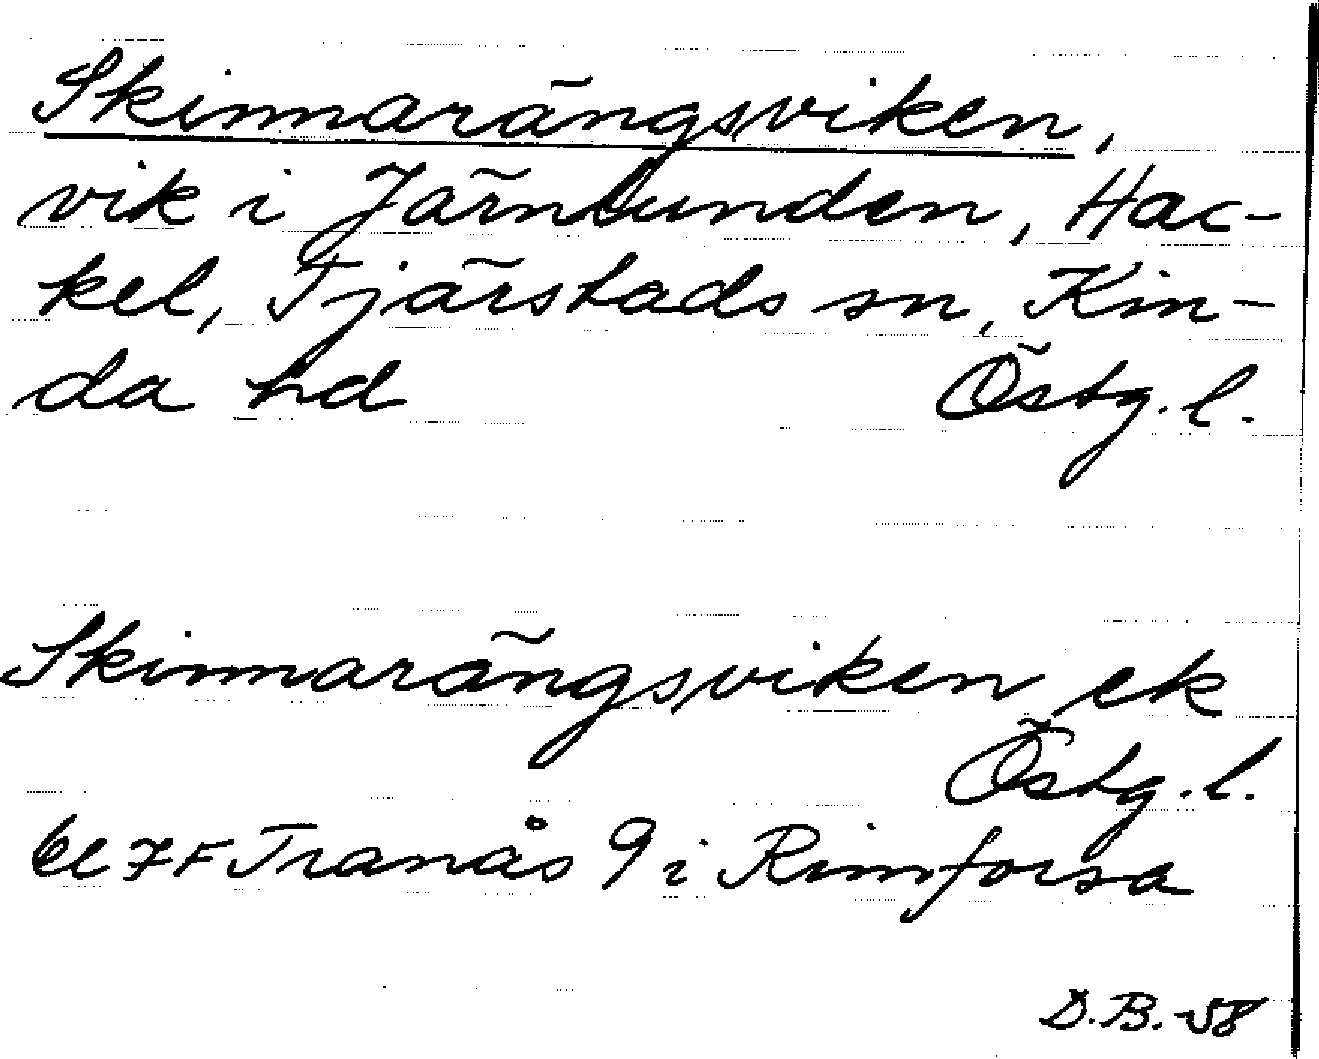 Skinnarängsviken,
vik i Järnlunden, Hac-
kel, Tjärstads sn, Kin-
da hd Östg. l.
Skinnarängsviken ek
Östg. l.
bl 7F Tranås 9 i Rimforsa
D.B. -58